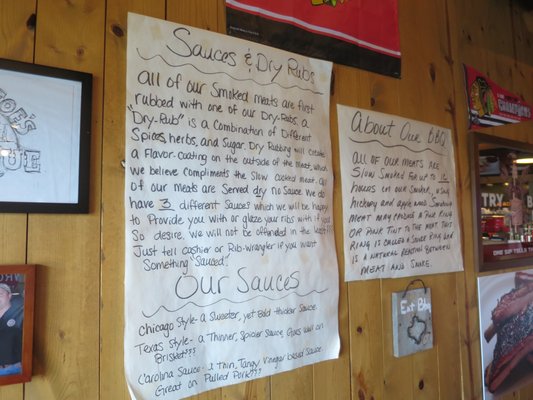 Sauces & Dry Rubs
All of our Smoked meats are first
rubbed with one of our Dry-Rubs. A
"Dry-Rub" is a Combination of Different
Spices, herbs, and Sugar. Dry Rubbing will create
a flavor coating on the outside of the meat, which
we believe compliments the Slow cooked meat. All
of our meats are Served dry no Sauce. We do
have 3 different Sauces which we will be happy
to Provide you with or glaze your ribs with if you
So desire. We will not be offended in the least!!!
Just tell cashier or Rib-wrangler if you want
Something "Sauced"
Our Sauces
Chicago Style- a Sweeter, yet Bold thicker Sauce.
Texas Style- a Thinner, Spicier Sauce, Goes well on
Brisket???
Carolina Sauce- a thin, Tangy Vinegar based Sauce
Great on Pulled Pork???
About Our BBQ
All of our meats are
Slow Smoked for up to 12
hours in our Smoker, using
Hickory and apple wood. Smoking
meat may cause a Pink Ring
or Pink Tint to the meat. This
Ring is called a Smoke Ring and
is a natural reaction between
meat and Smoke.
Eat BBQ
CHAMPIONS
TRY